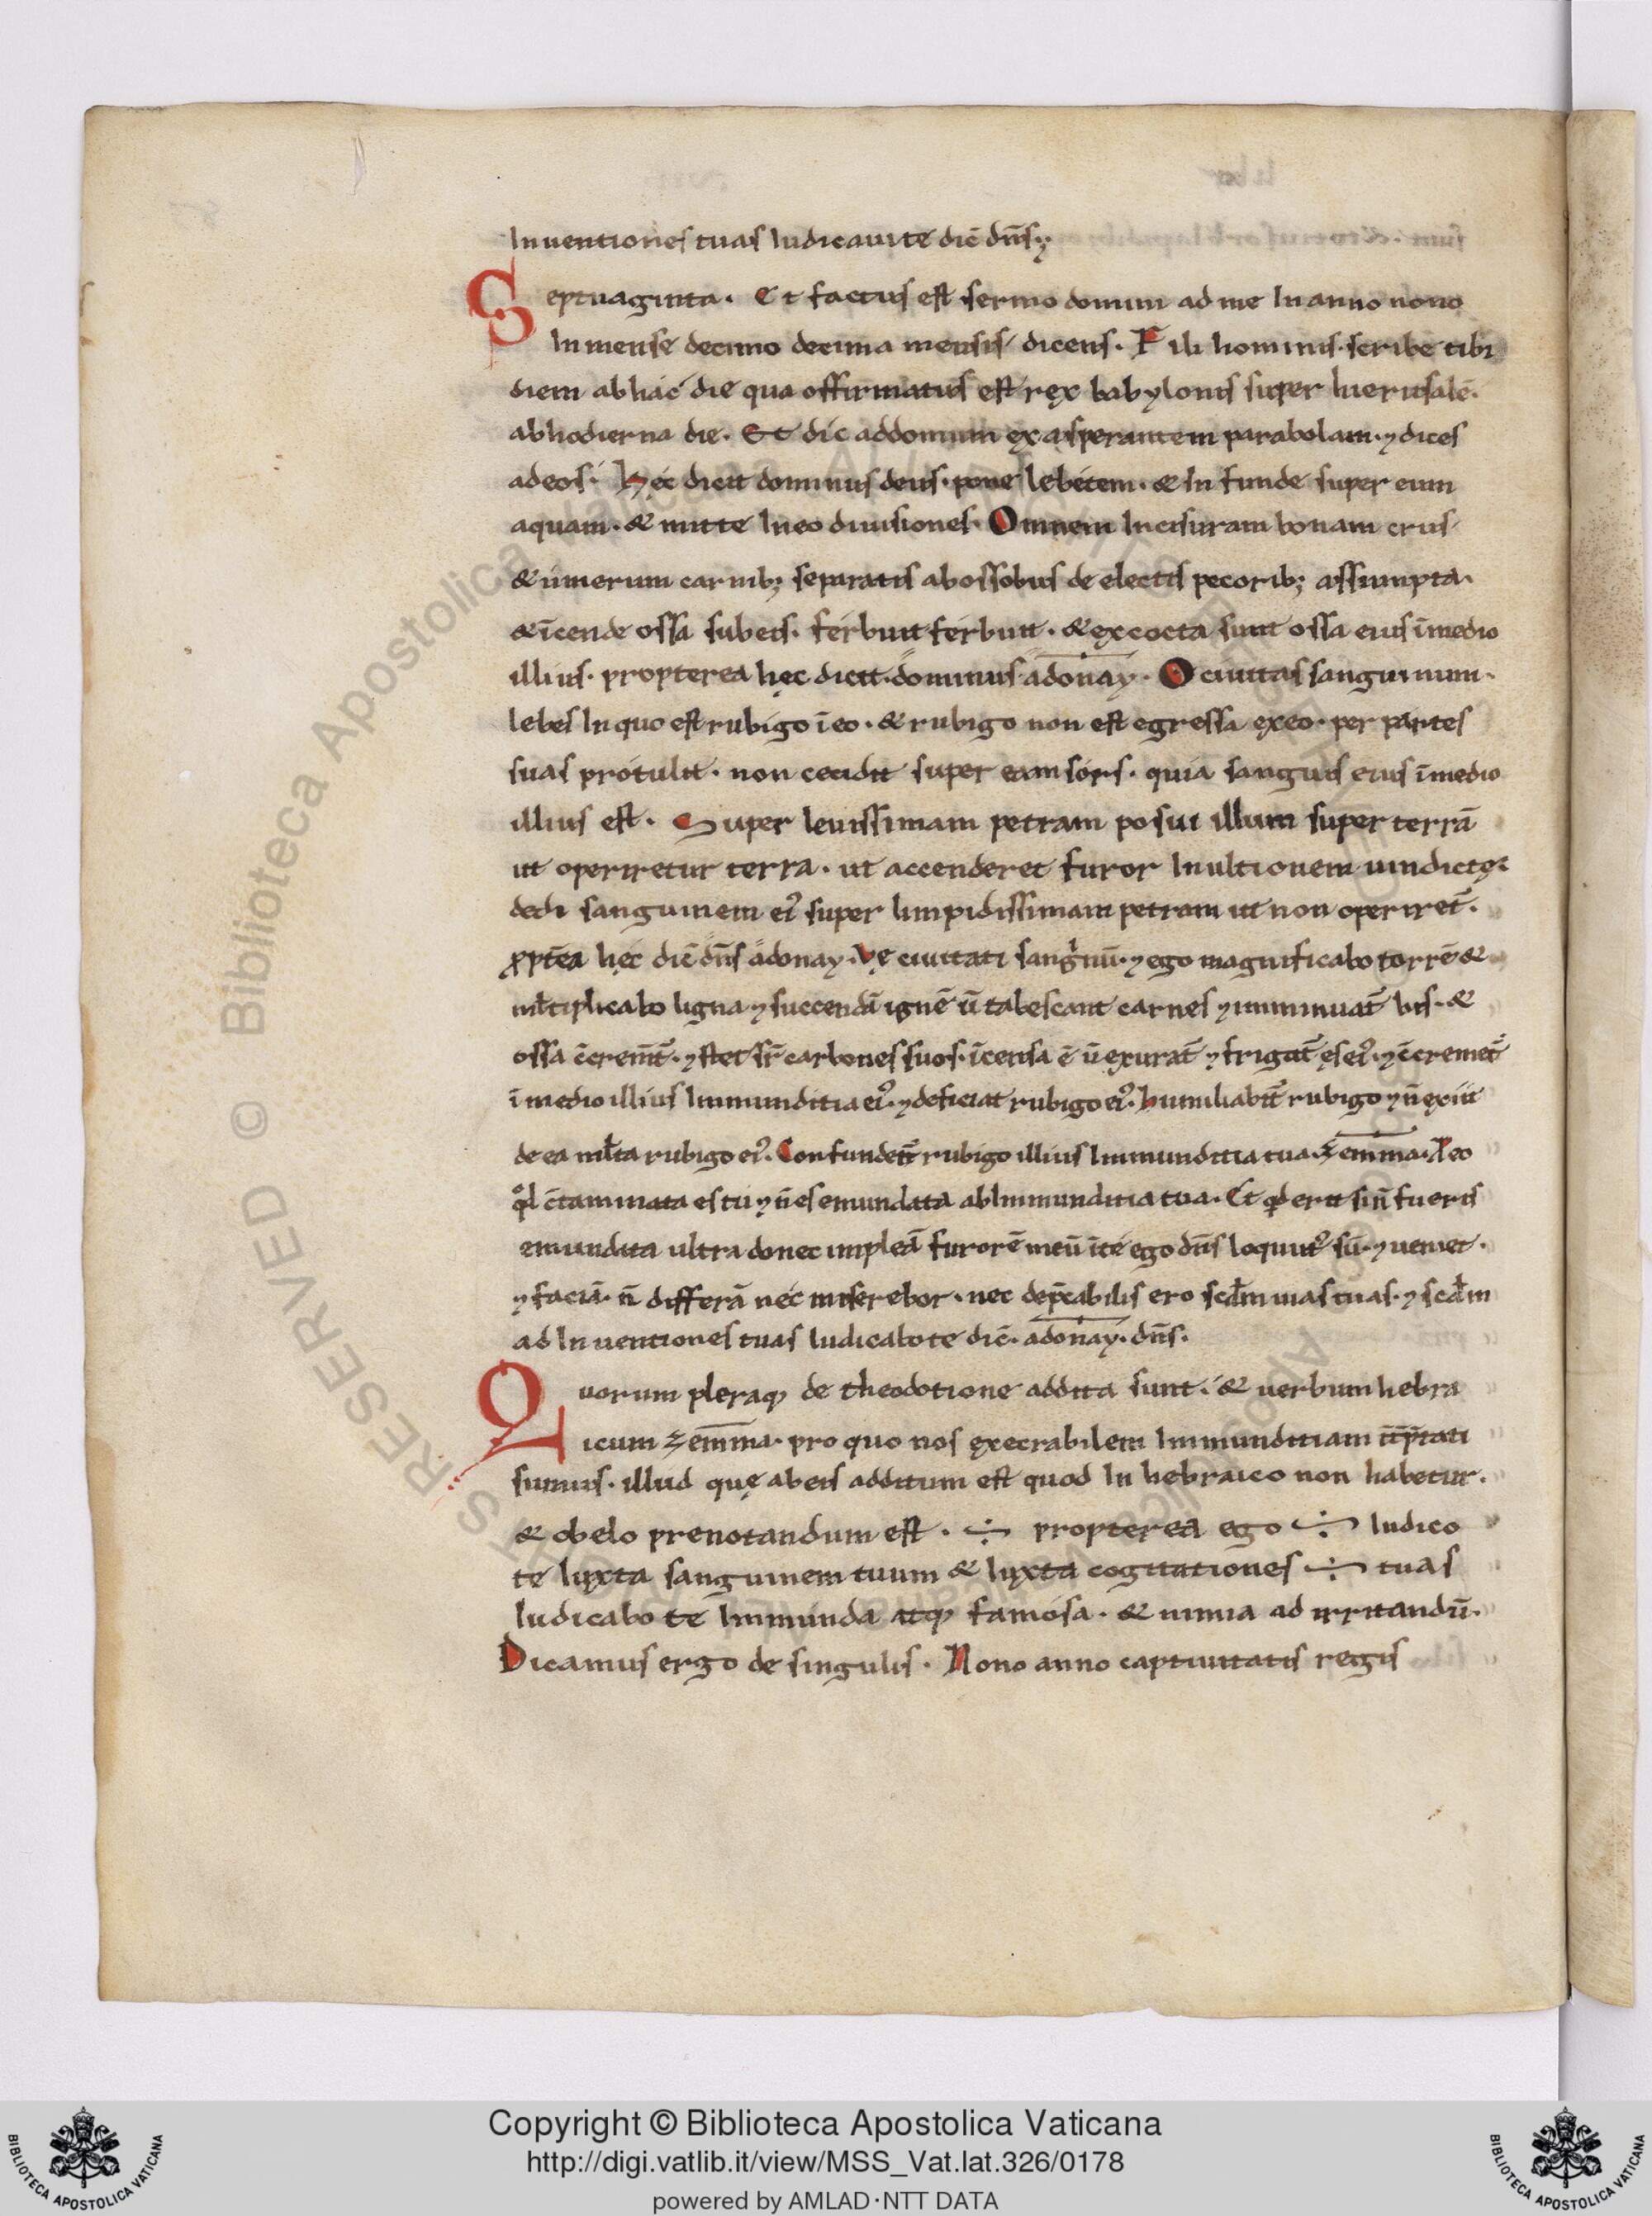 Inuentiones tuas Iudicauite dic̄ dn̄s;
Septuaginta. Et factus est sermo domini ad me In anno nono
In mense decimo decima mensis dicens. Fili hominis scribe tibi
diem abhác die qua offirmatus est rex babylonis super hierusalē.
abhodierna die. Et dic addomum exasperantem parabolam. ⁊ dices
adeos. Hęc dicit dominus deus. pone lebetem. & In funde super eum
aquam. & mitte Ineo diuisiones. Omnem Incisuram bonam crus
& umerum carnib; separatis abossobus de electis pecorib; assumpta.
& īcende ossa subeis. ferbuit ferbuit. & excocta sunt ossa eius īmedio
illius. propterea hęc dicit dominus adonay. O ciuitas sanguinum.
lebes In quo est rubigo ī eo. & rubigo non est egressa exeo. per partes
suas protulit. non cecidit super eam sors. quia sanguis eius īmedio
illius est. Super leuissimam petram posui illum super terrā
ut operiretur terra. ut accenderet furor Inultionem uindictę.
dedi sanguinem ei᾿ super limpidissimam petram ut non operiret̄.
ꝓptēa hęc dic̄ dn̄s adonay. Vę ciuitati sang̾nū. ⁊ ego magnificabo torrē &
ml̄tiplicabo ligna ⁊ succendā ignē ū tabescant carnes ⁊ imminuat̄ bis. &
ossa c̄crem̄t̄. ⁊ stet sr̄ carbones suos. īcensa ē ū exurat̄ ⁊ frigat̄ ęs ei᾿. ⁊ c̄cremet̄
ī medio illius Immunditia ei᾿. ⁊ deficiat rubigo ei᾿. humiliabit̄ rubigo ⁊ n̄ exiit
de ea ml̄ta rubigo ei᾿. Confundet̄ rubigo illius Immunditia tua. zemma. Ieo
qd̄ c̄taminata es tu ⁊ n̄ es emundata abImmunditia tua. Et qd̄ erit si n̄ fueris
emundata ultra donec impleā furorē meū īte ego dn̄s loquut᾿ sū. ⁊ ueniet.
⁊ faciā. n̄ differā nec miserebor. nec dep̄cabilis ero scd̄m uias tuas. ⁊ scd̄m
ad Inuentiones tuas Iudicabote dic̄. adonay. dn̄s.
Quorum pleraq; de theodotione addita sunt. & uerbum hebra
icum zemma. pro quo nos execrabilem Immunditiam īt̄p̄tati
sumus. illud quę abeis additum est quod In hebraico non habetur.
& obelo prenotandum est. ÷ propterea ego ÷ Iudico
te Iuxta sanguinem tuum & Iuxta cogitationes ÷ tuas
Iudicabo te Immunda atq; famosa. & nimia ad irritandū.
Dicamus ergo de singulis. Nono anno captiuitatis regis
Copyright © Biblioteca Apostolica Vaticana
http://digi.vatlib.it/view/MSS_Vat.lat.326/0178
powered by AMLAD·NTT DATA